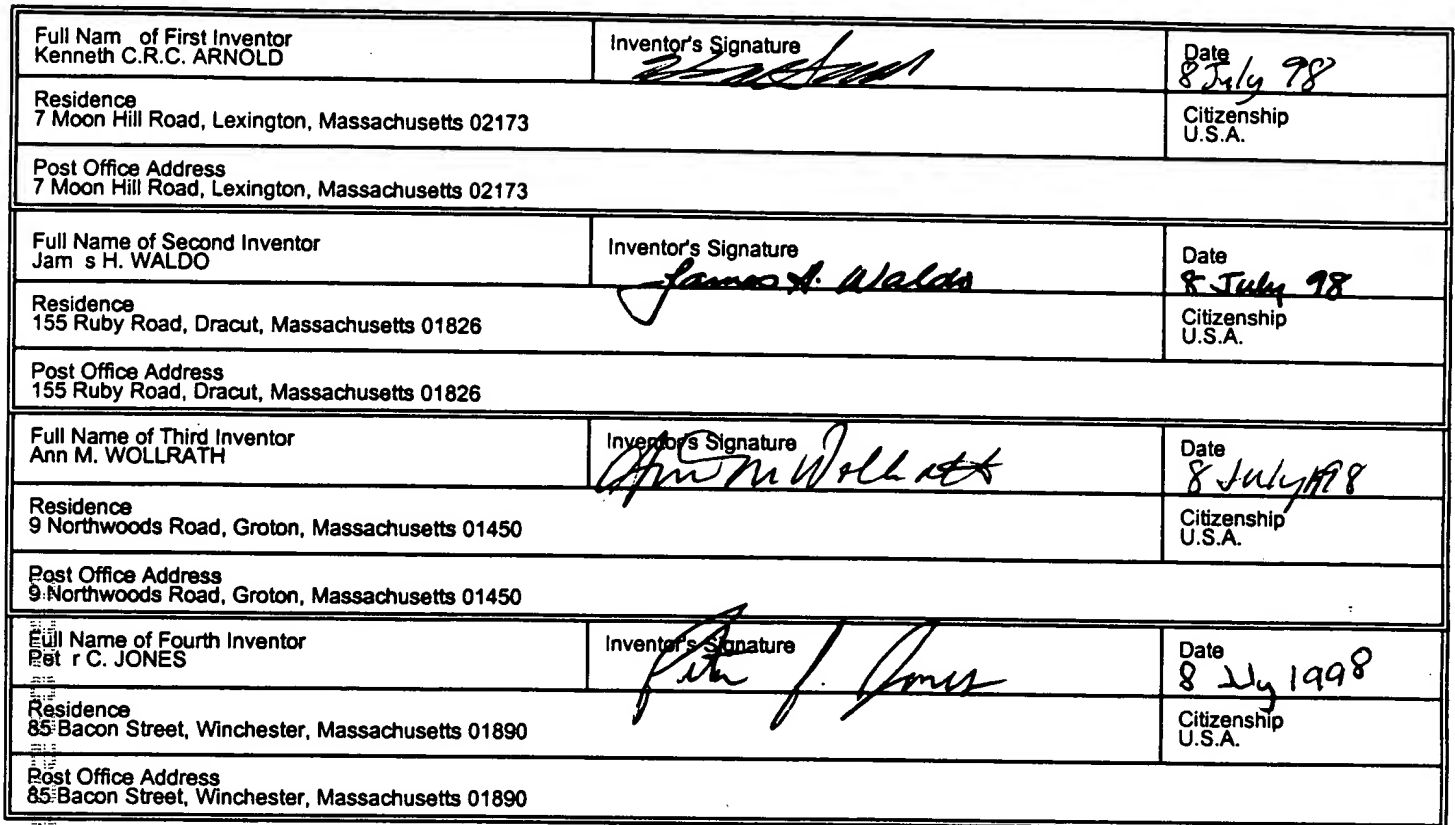 Full Nam of First Inventor
Kenneth C.R.C. ARNOLD
Inventor's Signature
Date
8 July 98
Residence
7 Moon Hill Road, Lexington, Massachusetts 02173
Citizenship
U.S.A.
Post Office Address
7 Moon Hill Road, Lexington, Massachusetts 02173
Full Name of Second Inventor
Jam s H. WALDO
Inventor's Signature
James H. Waldo
Date
8 July 98
Residence
155 Ruby Road, Dracut, Massachusetts 01826
Citizenship
U.S.A.
Post Office Address
155 Ruby Road, Dracut, Massachusetts 01826
Full Name of Third Inventor
Ann M. WOLLRATH
Inventor's Signature
Ann M Wollrath
Date
8 July 1998
Residence
9 Northwoods Road, Groton, Massachusetts 01450
Citizenship
U.S.A.
Post Office Address
9 Northwoods Road, Groton, Massachusetts 01450
Full Name of Fourth Inventor
Pet r C. JONES
Inventor's Signature
Peter Jones
Date
8 July 1998
Residence
85 Bacon Street, Winchester, Massachusetts 01890
Citizenship
U.S.A.
Post Office Address
85 Bacon Street, Winchester, Massachusetts 01890